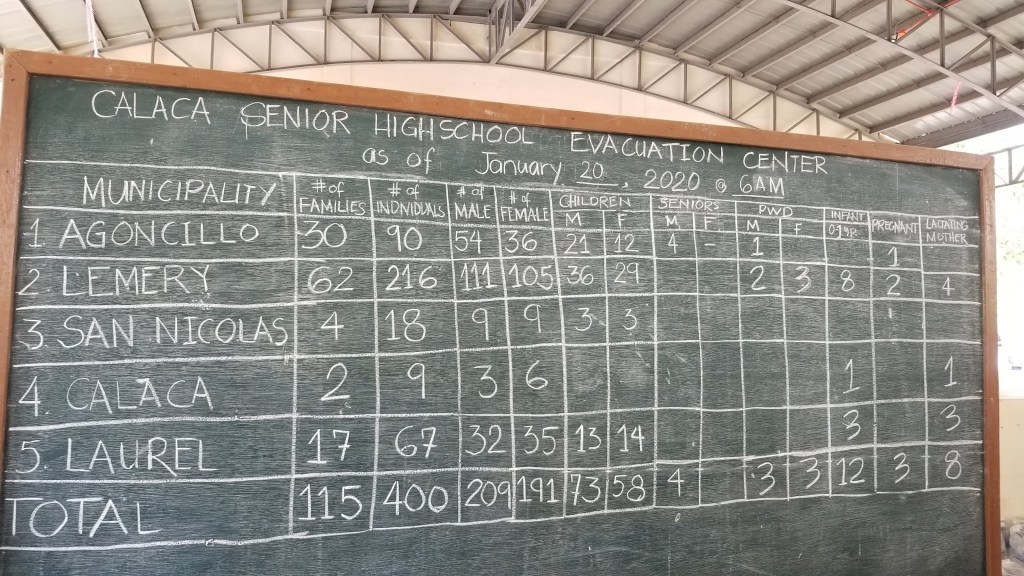 CALACA SENIOR HIGH SCHOOL EVACUATION CENTER
as of January 20, 2020 @ 6AM
MUNICIPALITY # of FAMILIES # of INDIVIDUALS # of MALE # of FEMALE CHILDREN M F SENIORS M F PWD M F INFANT 0-1yr. PREGNANT LACTATING MOTHER
1. AGONCILLO 30 90 54 36 21 12 4 - 1 1
2. LEMERY 62 216 111 105 36 29 2 3 8 2 4
3. SAN NICOLAS 4 18 9 9 3 3
4. CALACA 2 9 3 6 1 1
5. LAUREL 17 67 32 35 13 14 3 3
TOTAL 115 400 209 191 73 58 4 3 3 12 3 8